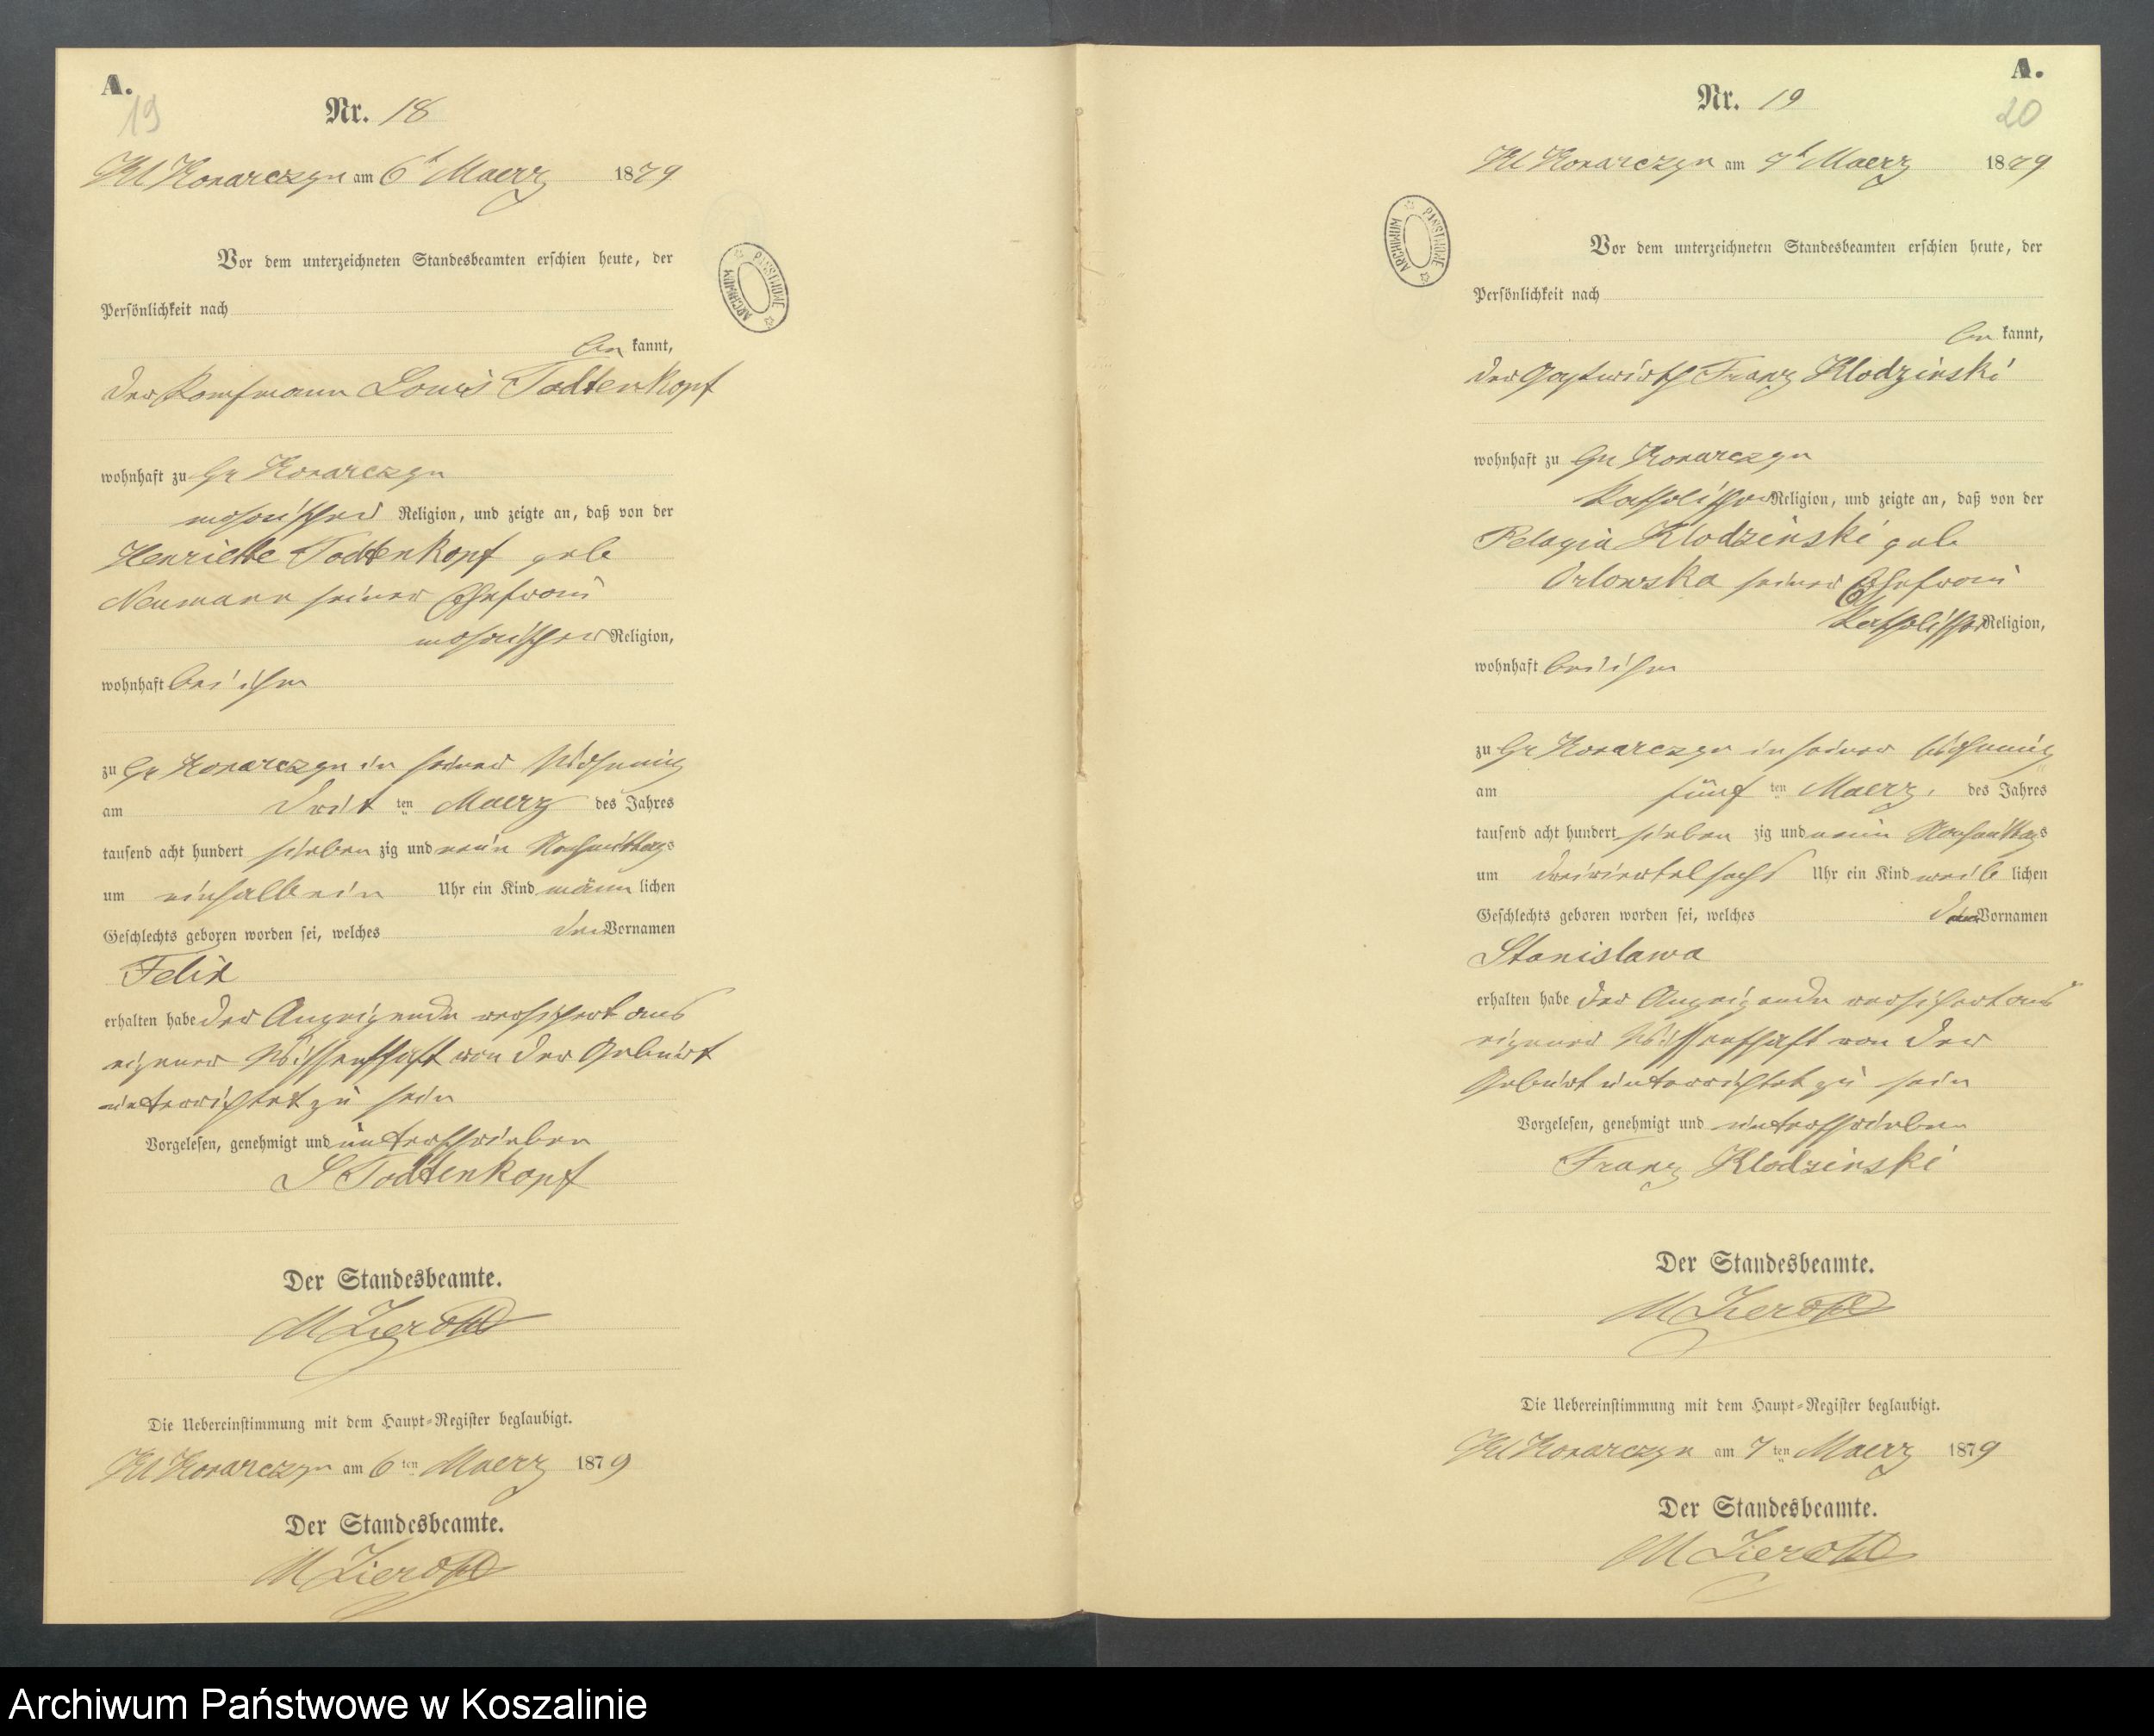 A.
19
Nr. 18
Kl Konarczyn am 6t Maerz 1879
Vor dem unterzeichneten Standesbeamten erschien heute, der
Persönlichkeit nach
be kannt,
der Kaufmann Louis Todtenkopf
wohnhaft zu Gr Konarczyn
mosaischer Religion, und zeigte an, daß von der
Henriette Todtenkopf geb
Neumann seiner Ehefrau
mosaischer Religion,
wohnhaft bei ihm
zu Gr Konarczyn in seiner Wohnung
am drit ten Maerz des Jahres
tausend acht hundert sieben zig und neun Nachmittags
um einhalb ein Uhr ein Kind männ lichen
Geschlechts geboren worden sei, welches den Vornamen
Felix
erhalten habe der Anzeigende versichert aus
eigener Wissenschaft von der Geburt
unterrichtet zu sein
Vorgelesen, genehmigt und unterschrieben
L Todtenkopf
Der Standesbeamte.
M Zierold
Die Uebereinstimmung mit dem Haupt-Register beglaubigt.
Kl Konarczyn am 6 ten Maerz 1879
Der Standesbeamte.
M Zierold
A.
20
Nr. 19
Kl Konarczyn am 7t Maerz 1879
Vor dem unterzeichneten Standesbeamten erschien heute, der
Persönlichkeit nach
be kannt,
der Gastwirth Franz Klodzinski
wohnhaft zu Gr Konarczyn
katholischer Religion, und zeigte an, daß von der
Pelagia Klodzinski geb
Orlowska seiner Ehefrau
katholischer Religion,
wohnhaft bei ihm
zu Gr Konarczyn in seiner Wohnung
am fünf ten Maerz. des Jahres
tausend acht hundert sieben zig und neun Nachmittags
um dreiviertelsechs Uhr ein Kind weib lichen
Geschlechts geboren worden sei, welches den Vornamen
Stanislawa
erhalten habe der Anzeigende versichert aus
eigener Wissenschaft von der
Geburt unterrichtet zu sein
Vorgelesen, genehmigt und unterschrieben
Franz Klodzinski
Der Standesbeamte.
M Zierold
Die Uebereinstimmung mit dem Haupt-Register beglaubigt.
Kl Konarczyn am 7 ten Maerz 1879
Der Standesbeamte.
M Zierold
ARCHIWUM PAŃSTWOWE
ARCHIWUM PAŃSTWOWE
Archiwum Państwowe w Koszalinie